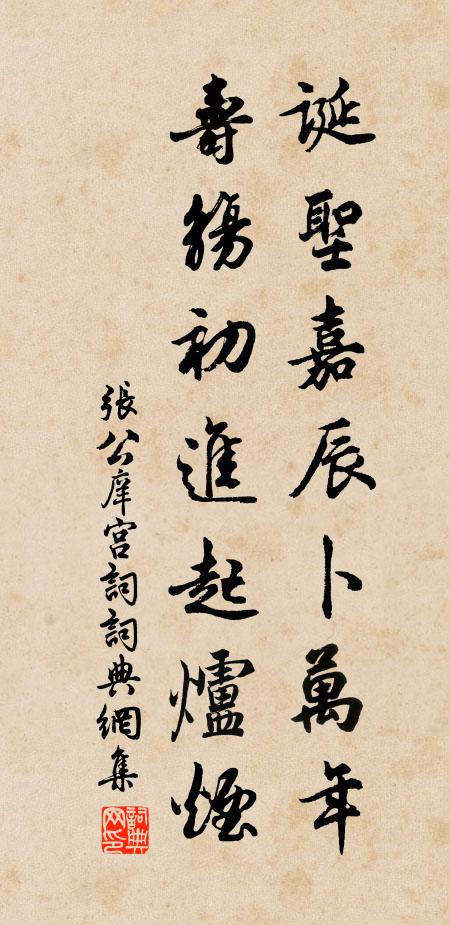 誕聖嘉辰卜萬年
壽觴初進起爐煙
張公庠宮詞詞典網集
詞典网印